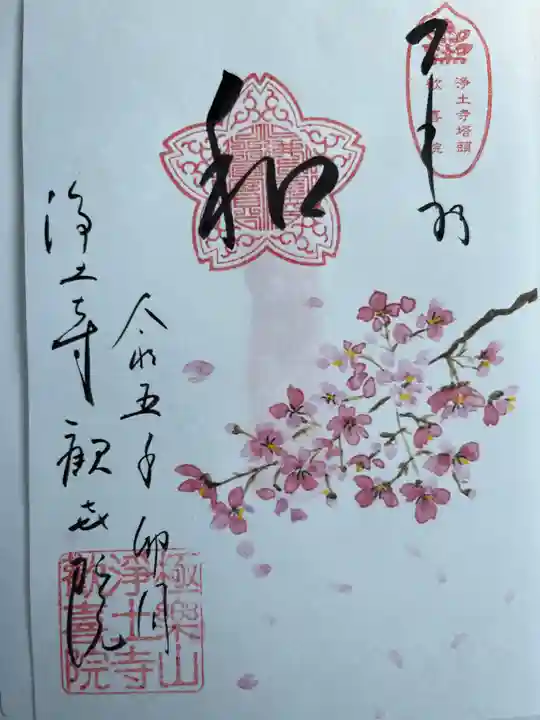 浄土寺塔頭
歓喜院
和
令和五年卯月
浄土寺歓喜院
極樂山
浄土寺
歓喜院